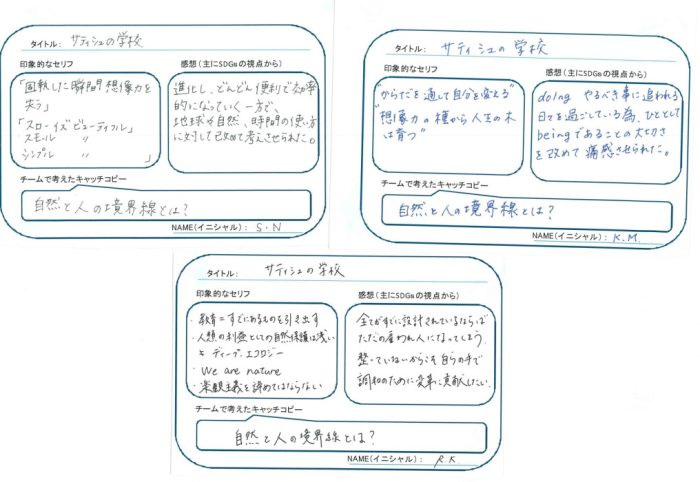 タイトル： サティシュの学校
印象的なセリフ
「固執した瞬間想像力を
失う」
「スローイズビューティフル」
スモール 〃
シンプル 〃 」
感想（主にSDGsの視点から）
進化し、どんどん便利で効率
的になっていく一方で、
地球や自然、時間の使い方
に対して改めて考えさせられた。
チームで考えたキャッチコピー
自然と人の境界線とは？
NAME（イニシャル）： S・N
タイトル： サティシュの学校
印象的なセリフ
"からだを通して自分を変える"
"想像力の種から人生の木
は育つ"
感想（主にSDGsの視点から）
doing やるべき事に追われる
日々を過ごしている為、ひととして
beingであることの大切さ
を改めて痛感させられた。
チームで考えたキャッチコピー
自然と人の境界線とは？
NAME（イニシャル）： K.M.
タイトル： サティシュの学校
印象的なセリフ
・教育＝すでにあるものを引き出す
・人類の利益としての自然保護は浅い
ディープ・エコロジー
・We are nature
・楽観主義を諦めてはならない
感想（主にSDGsの視点から）
全てがすでに設計されているならば
ただの雇われ人になってしまう。
整っていないからこそ自らの手で
調和のために変革に貢献したい。
チームで考えたキャッチコピー
自然と人の境界線とは？
NAME（イニシャル）： R.K